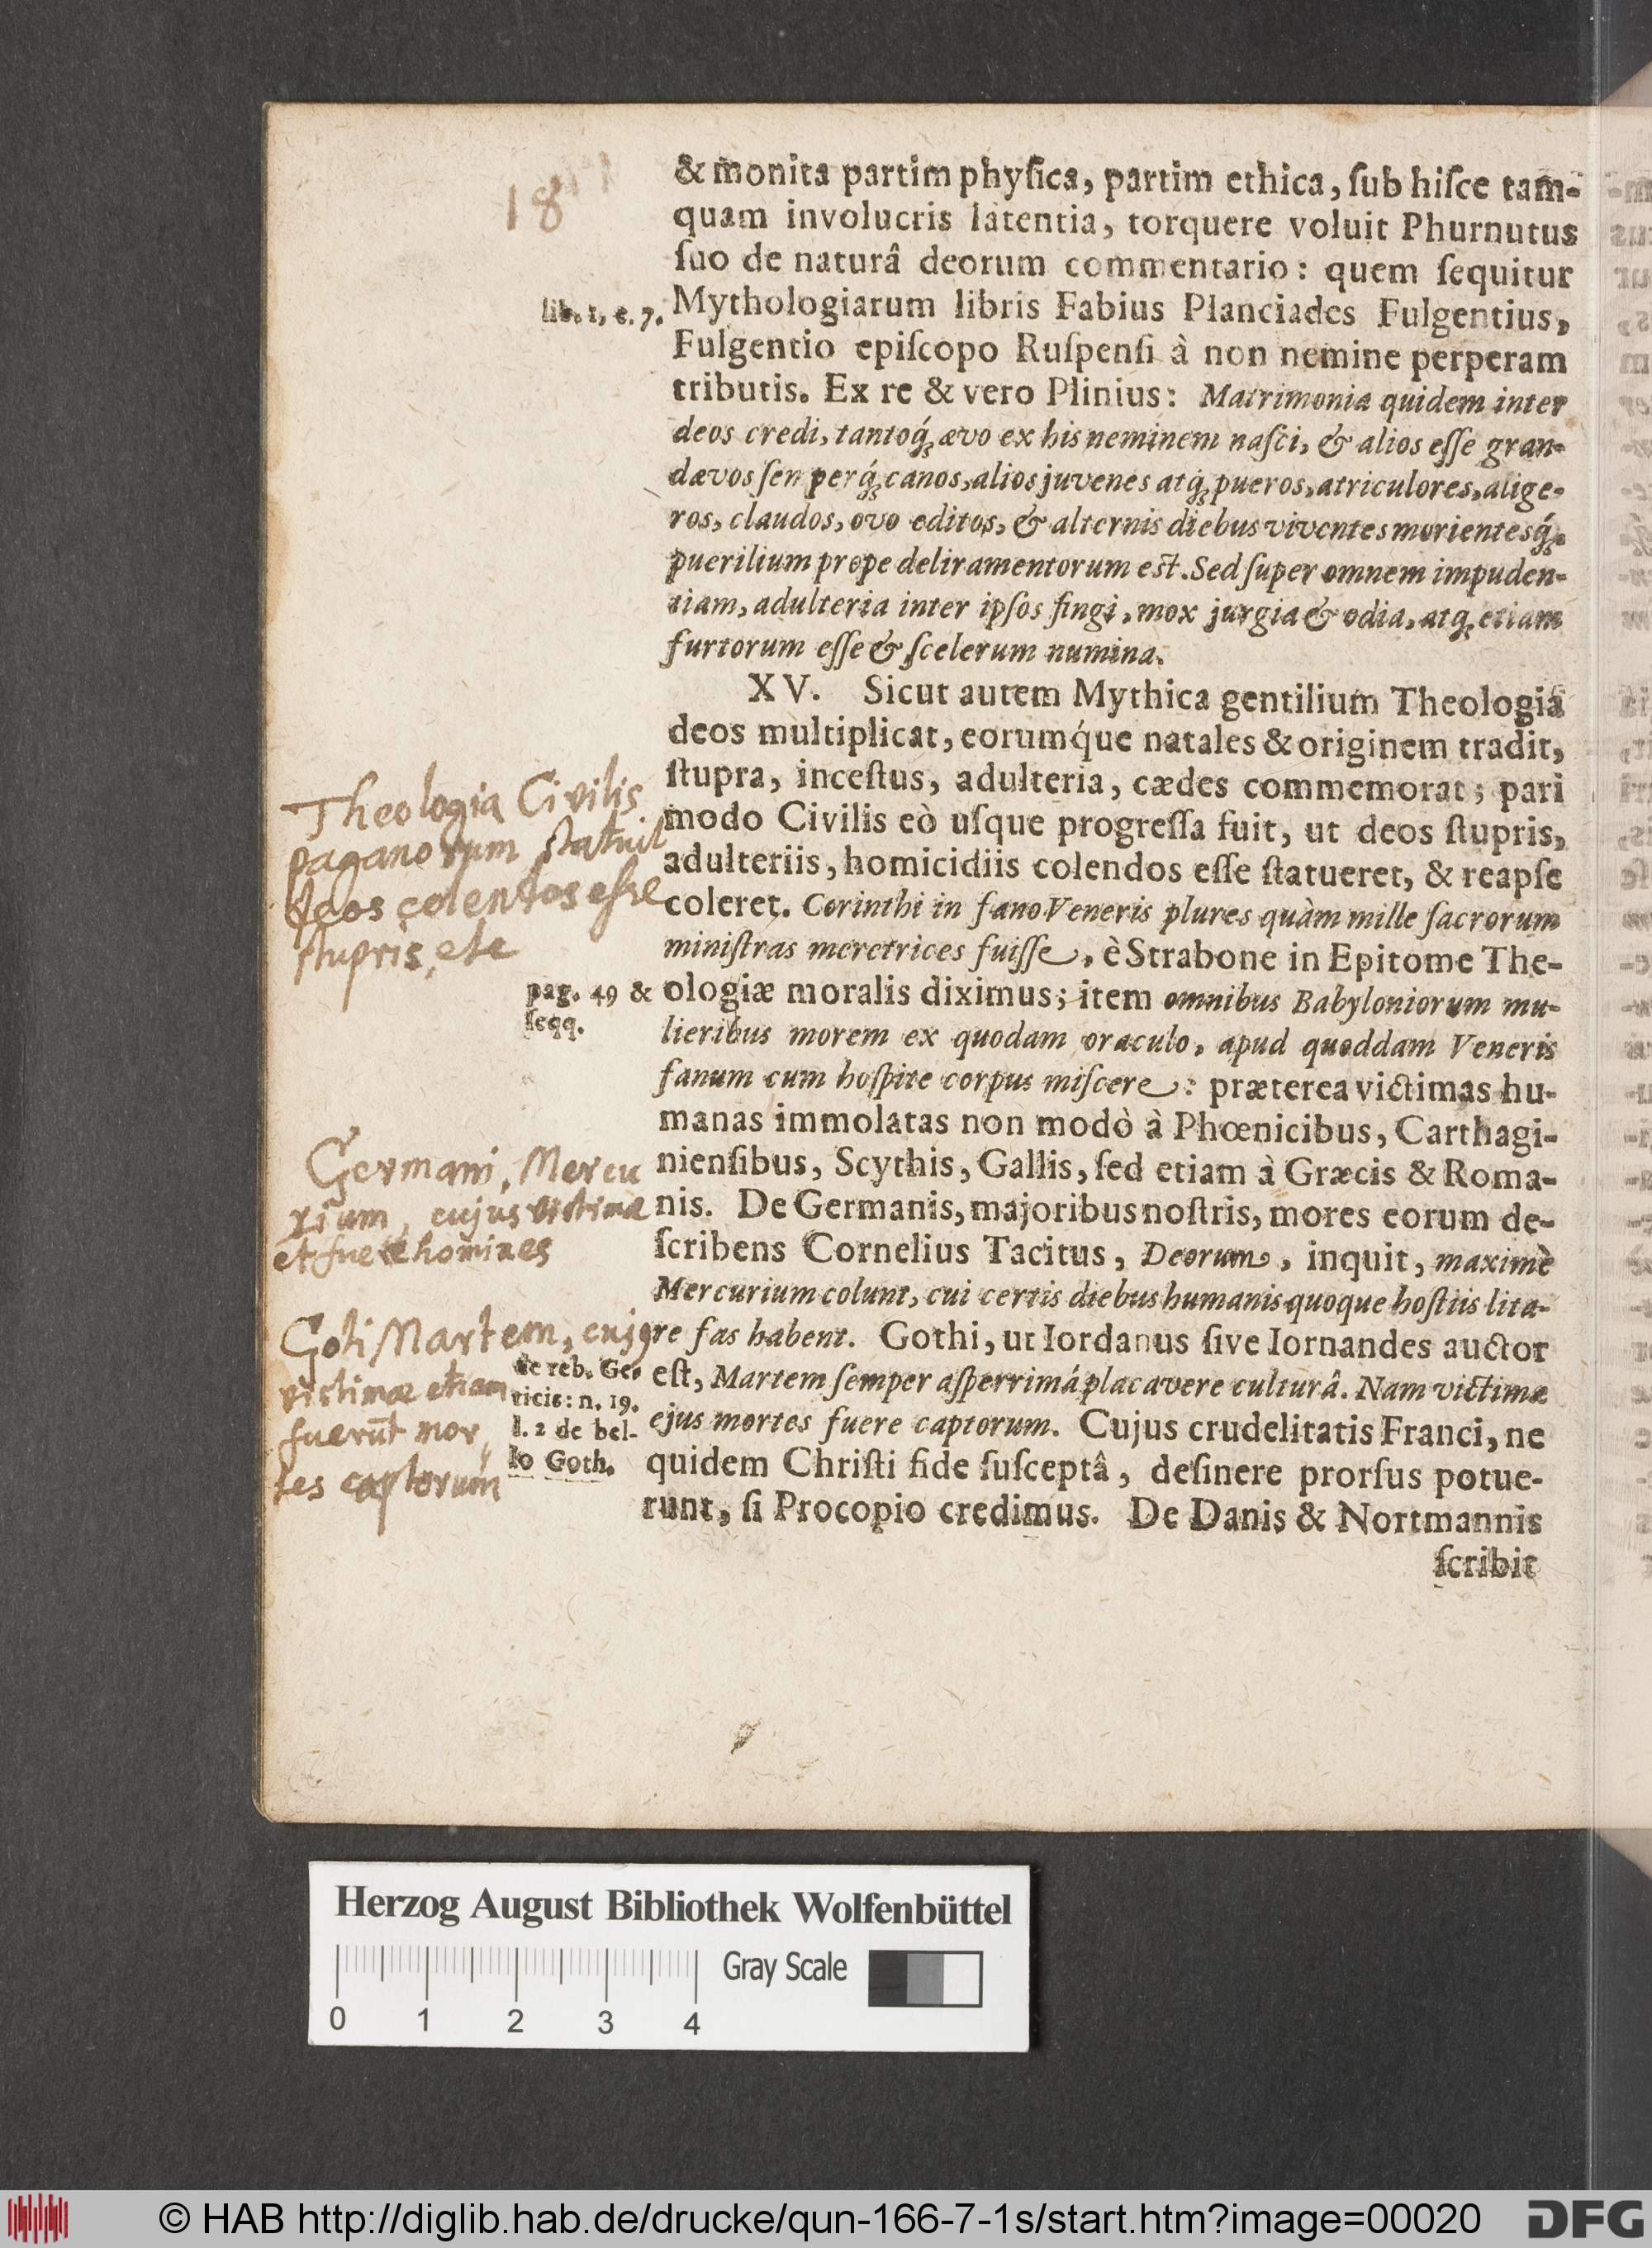 18
& monita partim physica, partim ethica, ſub hiſce tam-
quam involucris latentia, torquere voluit Phurnutus
ſuo de naturâ deorum commentario: quem ſequitur
lib. 1, c. 7.
Mythologiarum libris Fabius Planciades Fulgentius,
Fulgentio epiſcopo Ruſpenſi à non nemine perperam
tributis. Ex re & vero Plinius: Matrimonia quidem inter
deos credi, tantoq́; ævo ex his neminem naſci, & alios eſſe gran-
dævos ſemperq́; canos, alios juvenes atq́; pueros, atricolores, alige-
ros, claudos, ovo editos, & alternis diebus viventes morientesq́;.
puerilium prope deliramentorum eſt. Sed ſuper omnem impuden-
tiam, adulteria inter ipſos fingi, mox jurgia & odia, atq; etiam
furtorum eſſe & ſcelerum numina.
XV. Sicut autem Mythica gentilium Theologia
deos multiplicat, eorumq́ue natales & originem tradit,
ſtupra, inceſtus, adulteria, cædes commemorat; pari
modo Civilis eò uſque progreſſa fuit, ut deos ſtupris,
adulteriis, homicidiis colendos eſſe ſtatueret, & reapſe
coleret. Corinthi in fano Veneris plures quàm mille ſacrorum
miniſtras meretrices fuiſſe, è Strabone in Epitome The-
Theologia Civilis
paganorum statuit
deos colendos eſse
stupris, etc
pag. 49 &
ſeqq.
ologiæ moralis diximus; item omnibus Babyloniorum mu-
lieribus morem ex quodam oraculo, apud quoddam Veneris
fanum cum hoſpite corpus miſcere: præterea victimas hu-
manas immolatas non modò à Phœnicibus, Carthagi-
nienſibus, Scythis, Gallis, ſed etiam à Græcis & Roma-
nis. De Germanis, majoribus noſtris, mores eorum de-
ſcribens Cornelius Tacitus, Deorum, inquit, maximè
Mercurium colunt, cui certis diebus humanis quoque hoſtiis lita-
re fas habent. Gothi, ut Iordanus ſive Iornandes auctor
Germani, Mercu
rium, cujus victimæ
et fuere homines
Goti Martem, cujus
victimæ etiam
fuerūt mor,
tes captorum
de reb. Ge-
ticis: n. 19.
l. 2 de bel-
lo Goth.
eſt, Martem ſemper aſperrimâ placavere culturâ. Nam victimæ
ejus mortes fuere captorum. Cujus crudelitatis Franci, ne
quidem Chriſti fide ſuſceptâ, deſinere prorſus potue-
runt, ſi Procopio credimus. De Danis & Nortmannis
ſcribit
Herzog August Bibliothek Wolfenbüttel
Gray Scale
0 1 2 3 4
© HAB http://diglib.hab.de/drucke/qun-166-7-1s/start.htm?image=00020
DFG